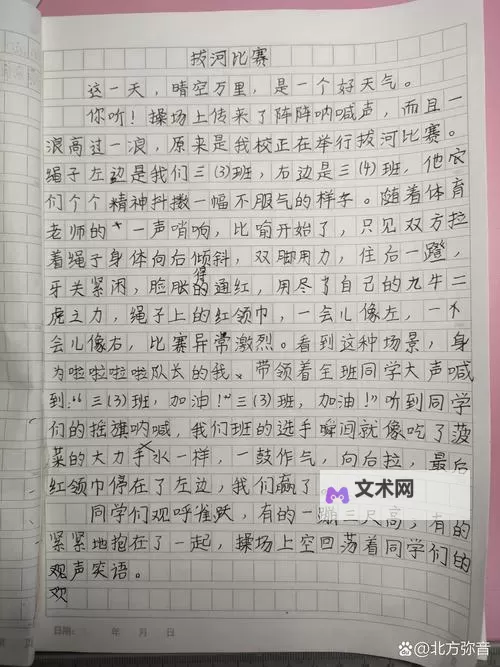 拔河比赛
这一天，晴空万里，是一个好天气。
你听！操场上传来了阵阵呐喊声，而且一
浪高过一浪，原来是我校正在举行拔河比赛。
绳子左边是我们三(3)班，右边是三(4)班，他
们个个精神抖擞一幅不服气的样子。随着体育
老师的"一声哨响，比开始了，只见双方拉
着绳子身体向后倾斜，双脚用力，住后一蹬，
牙关紧闭，脸胀得通红，用尽了自己的九牛二
虎之力，绳子上的红领巾，一会儿像左，一
会儿像右，比赛异常激烈。看到这种场景，身
为啦啦啦啦队长的我、带领着全班同学大声喊
到："三(3)班，加油！"三(3)班，加油！"听到同学
们的摇旗呐喊，我们班的选手瞬间就像吃了菠
菜的大力水手一样，一鼓作气，向后拉，最后
红领巾停在了左边，我们赢了
同学们观呼雀跃，有的一蹦三尺高，有的
紧紧地抱在了一起，操场上空回荡着同学们的
观声笑语。
欢
文术网
日期： 年 月 日
@北方弥音